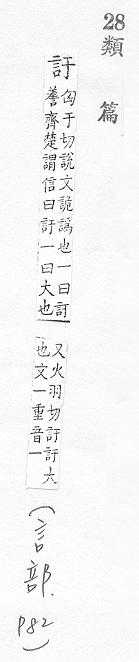 28
類篇
訏
匈于切說文詭譌也一曰訏
齊楚謂信曰訏一曰大也
又火羽切訏訏大
也文一重音一
(言部. P82)